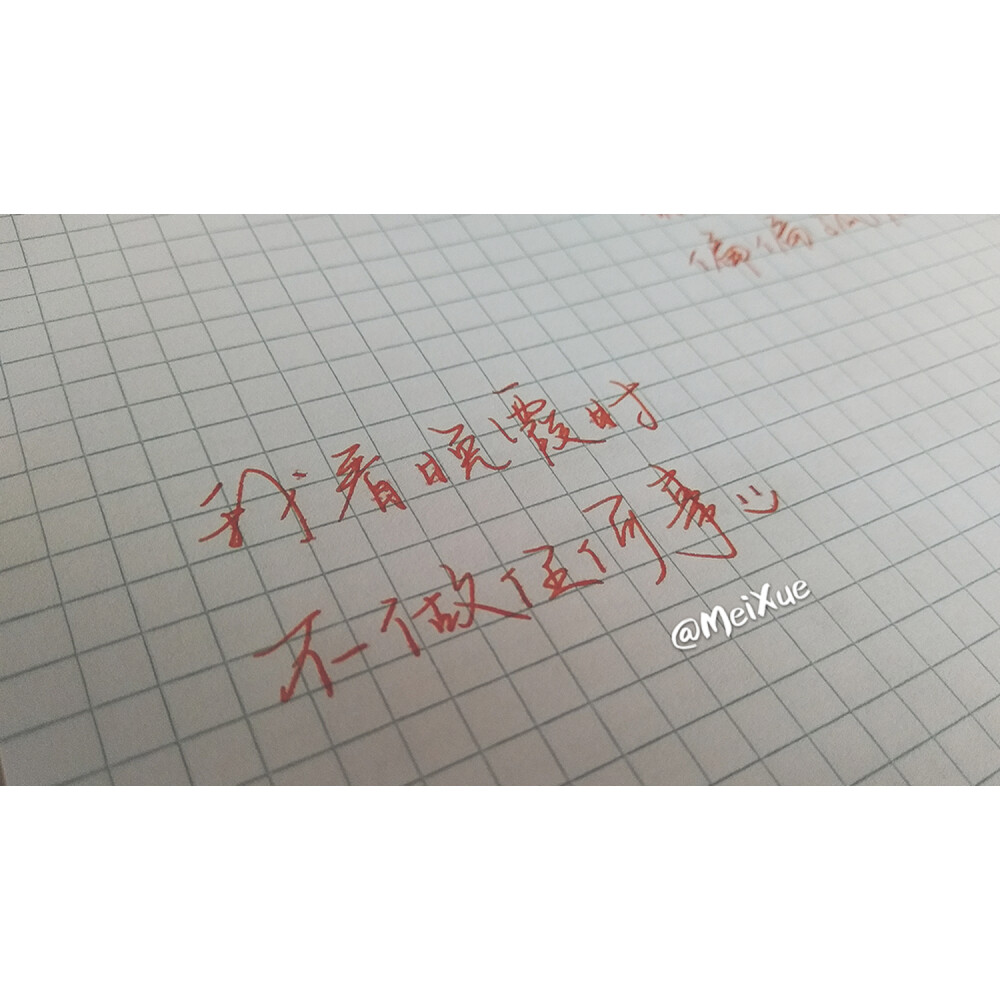 偏偏
我看晚霞时
不做任何事
@MeiXue